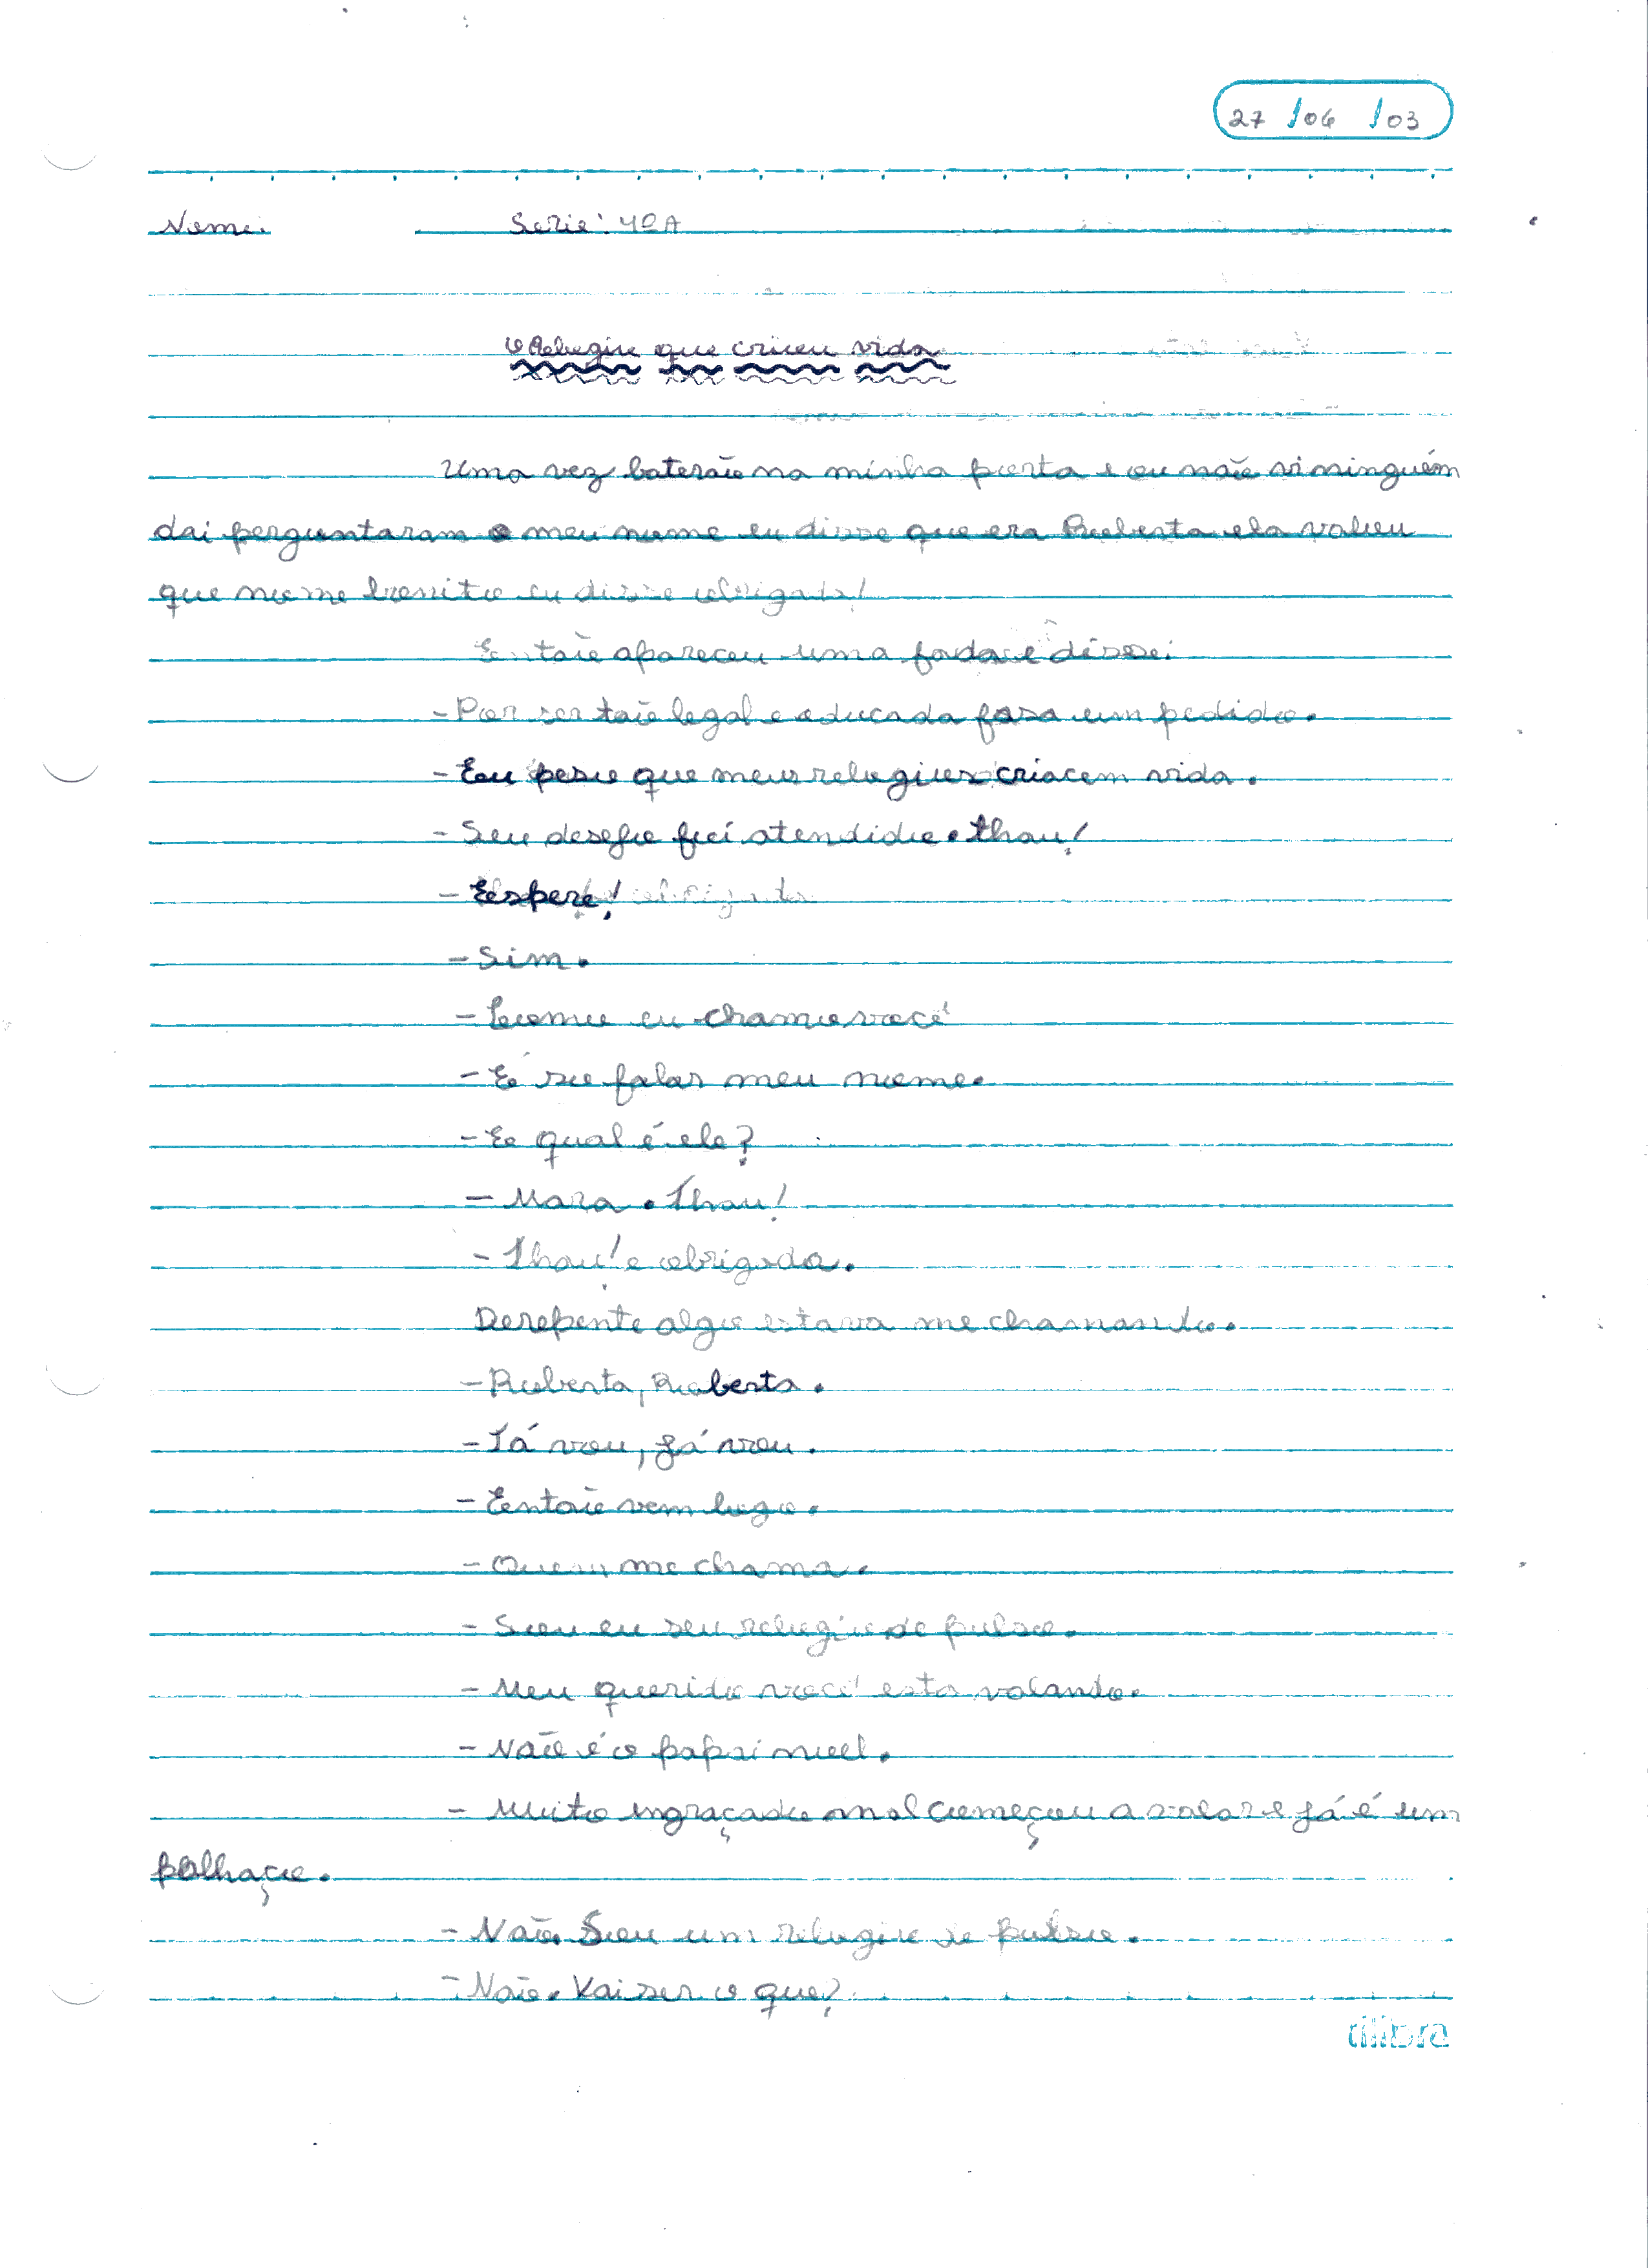 27 / 06 / 03
Nome: Serie: 4ºA
O Relogio que criou vida
Uma vez baterão na minha porta e eu não vi ninguém
dai perguntaram o meu nome eu disse que era Roberta ela valou
que nome bonito eu disse obrigada!
Então apareceu uma fada e disse:
- Por ser tão legal e educada fasa um pedido.
- Eu peso que meus relogios criacem vida.
- Seu desejo foi atendido. thau!
- Espere!
- Sim.
- Como eu chamo você
- É so falar meu nome.
- E qual é ele?
- Mara. Thau!
- Thau! e obrigada.
Derepente algo estava me chamando.
- Roberta, Roberta.
- Já vou, já vou.
- Então vem logo.
- Quem me chama.
- Sou eu seu relogio de pulso.
- Meu querido você esta valando.
- Não é o papai noel.
- Muito engraçado mal começou a valar e já é um
palhaço.
- Não. Sou um relogio de pulso.
- Não. Vai ser o que?
tilibra